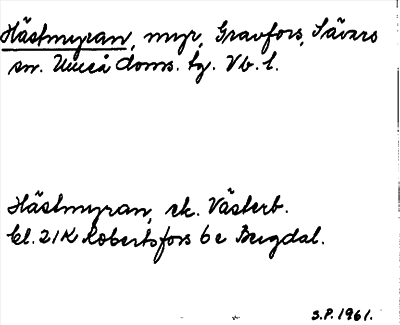 Hästmyran, myr, Gravfors, Sävars
sn. Umeå doms. tg. Vb. l.
Hästmyran, ek. Västerb.
bl. 21K Robertsfors 6e Bygdal.
S.P. 1961.